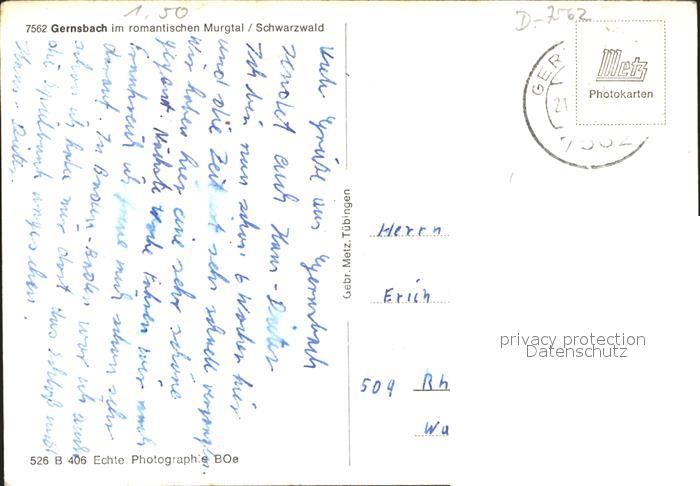 1.50
D-7562
7562 Gernsbach im romantischen Murgtal / Schwarzwald
Viele Grüße aus Gernsbach
sendet euch Hans-Dieter
Ich bin nun schon 6 Wochen hier
und die Zeit ist sehr schnell vergangen.
Wir haben hier eine sehr schöne
Gegend. Nächste Woche fahren wir nach
Frankreich ich freue mich schon sehr
darauf. In Baden-Baden war ich auch
schon ich habe mir dort das Schloß und
die Spielbank angesehen.
Hans-Dieter
526 B 406 Echte Photographie BOe
Gebr. Metz, Tübingen
GER
21
7562
Metz
Photokarten
Herrn
Erich
509 Rh
Wu
privacy protection
Datenschutz